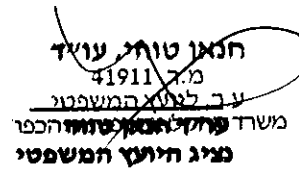 חנאן טוחי, עו"ד
מ.ר. 41911
ע.ב. ליועץ המשפטי
משרד הכפר
נציג היועץ המשפטי